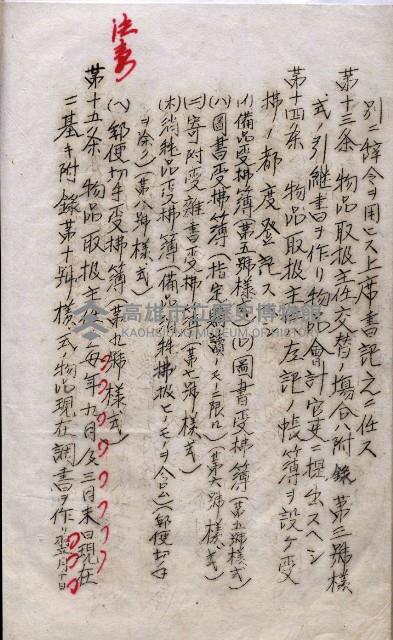 別ニ辞令ヲ用ヒス上席書記之ニ任ス
第十三条 物品取扱主任交替ノ場合ハ附録第三號様
式ノ引継書ヲ作リ物品會計官吏ニ提出スヘシ
第十四条 物品取扱主任ハ左記ノ帳簿ヲ設ケ受
拂ノ都度登記ス
(イ)備品受拂簿(第五號様式)(ロ)圖書受拂簿(第五號様式)
(ハ)圖書受拂簿(指定購讀ノモノニ限ル)(第六號様式)
(ニ)寄附受雜書受拂簿(第七號様式)
(ホ)消耗品受拂簿(備品消耗拂扱ヒノモノヲ含ム)(郵便切手
ヲ除ク)(第八號様式)
(ヘ)郵便切手受拂簿(第九號様式)
第十五条 物品取扱主任ハ毎年九月及三月末日現在
ニ基キ附錄第十號ノ様式ノ物品現在調書ヲ作リ翌月十日
法章
高雄市立歷史博物館
KAOHSIUNG MUSEUM OF HISTORY